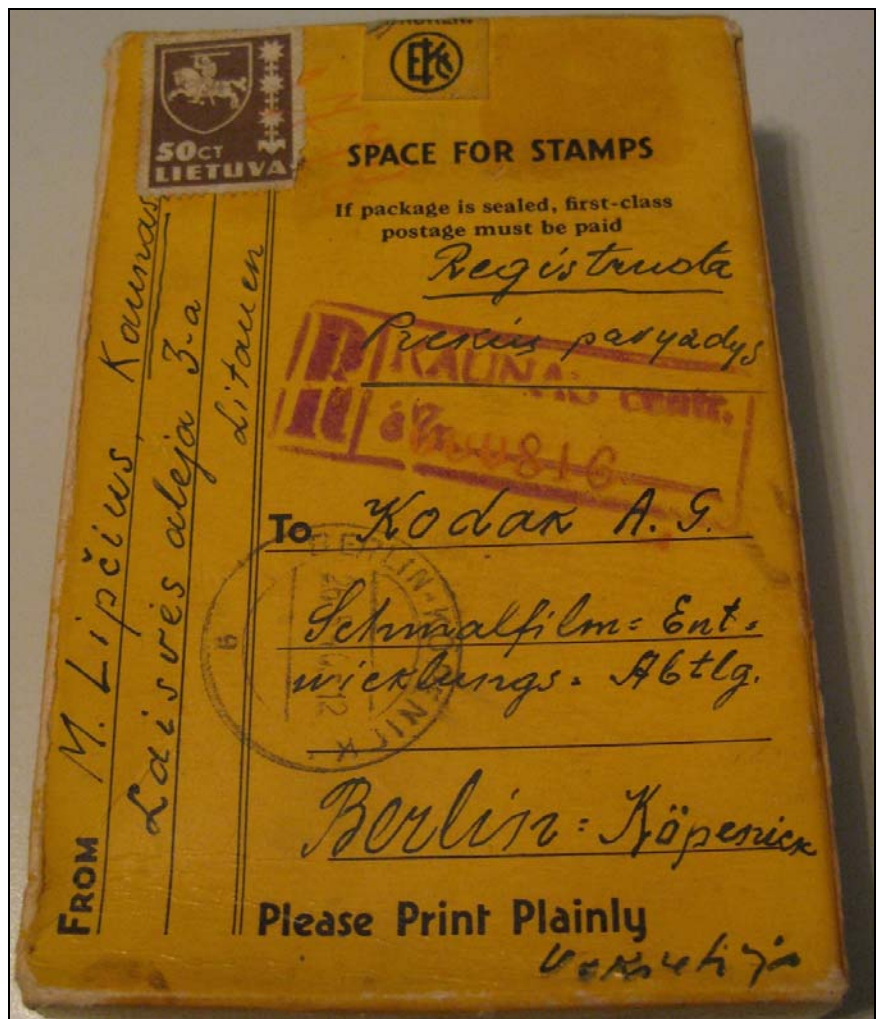 EKCo
50CT
LIETUVA
SPACE FOR STAMPS
If package is sealed, first-class
postage must be paid
Registruota
Prekių pavyzdys
R KAUNAS centr.
816
To Kodak A. G.
Schmalfilm= Ent=
wicklungs= Abtlg.
BERLIN-KÖPENICK
Berlin= Köpenick
Please Print Plainly
Vokietija
FROM M. Lipčius, Kaunas
Laisvės alėja 3-a
Litauen